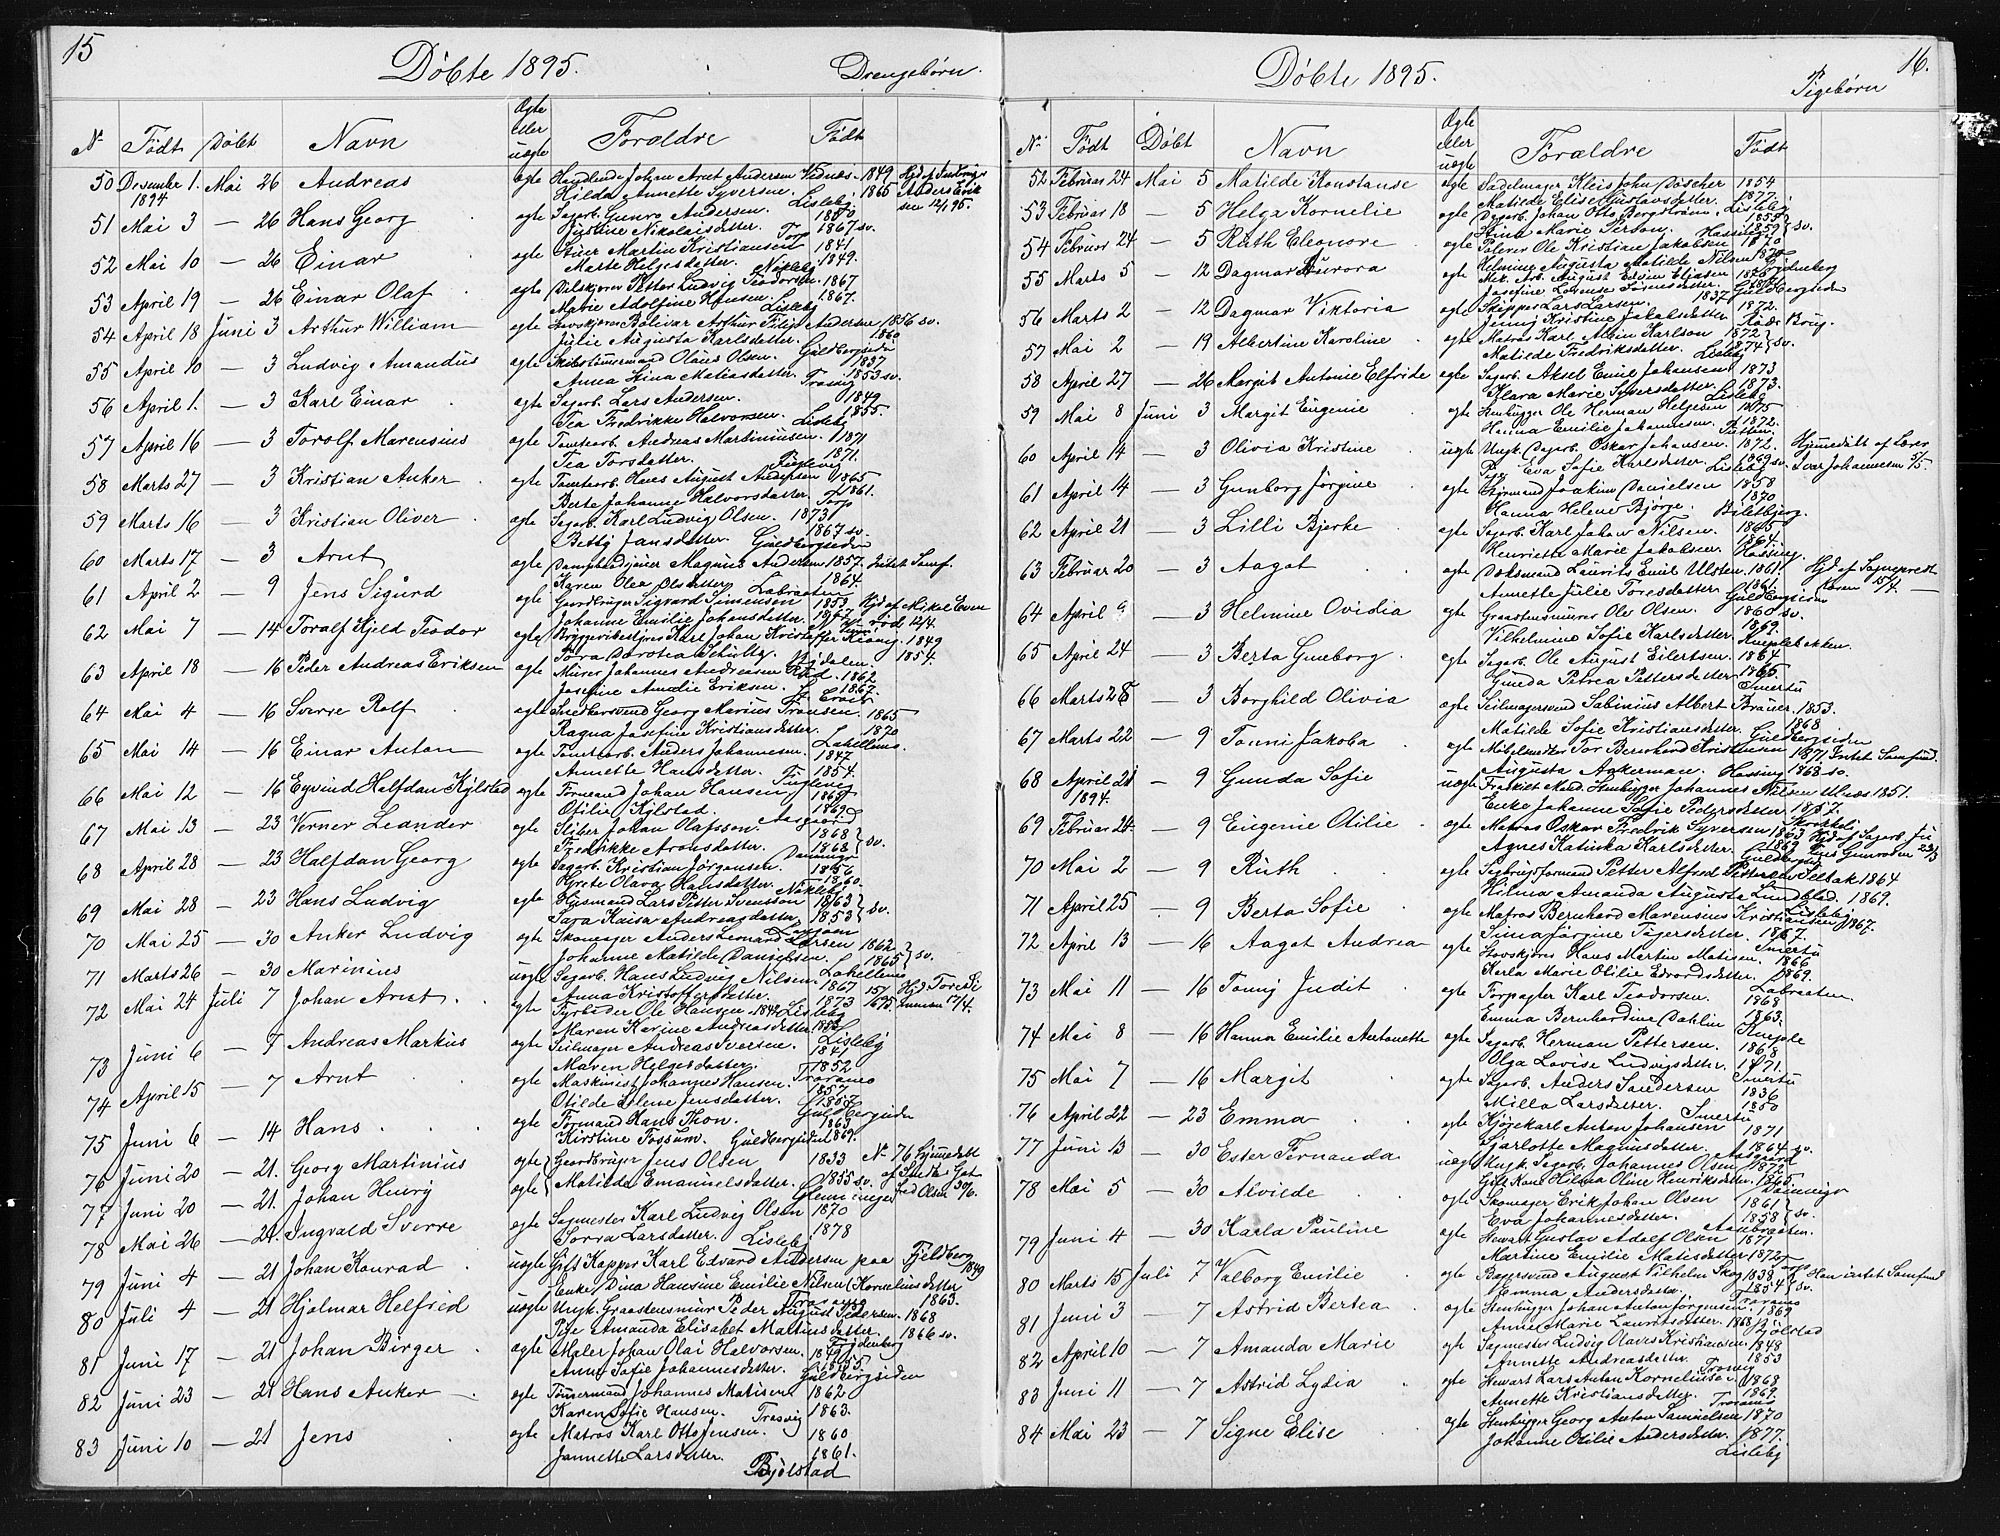 15
Döbte 1895.
Drengebørn.
№ Födt Döbt Navn Ægte eller uægte Foraldre Födt
50 Desember 1. 1894 Mai 26 Andreas ægte Handlende Johan Arnt Andersen 1849
Hilda Annette Syversen. Lisleby. 1865
51 Mai 3 — 26 Hans Georg ægte Sagarb. Gunro Andersen. 1870
Justine Nikolaisdatter. Torp 1867 sv.
52 Mai 10 — 26 Einar ægte Stuer Martin Kristiansen 1841
Marte Helgesdatter. Nökleby 1849.
53 April 19 — 26 Einar Olaf ægte Petter Ludvig Teodorsen. 1867
Marie Adolfine Hansen. Lisleby 1867.
54 April 18 Juni 3 Arthur William ægte Bolivar Arthur Filip Andersen 1856 sv.
Julie Augusta Karlsdatter. Guldbergsiden 1860
55 April 10 — 3 Ludvig Amandus ægte Skibstömmermand Olaus Olsen. 1837
Anna Stina Matiasdatter. Trosvig 1853 sv.
56 April 1. — 3 Karl Einar ægte Sagarb. Lars Andersen. 1849
Tea Fredrikke Halvorsen. Lisleby 1855.
57 April 16 — 3 Torolf Marensius ægte Tomtearb. Andreas Martiniusen. 1871
Tea Torsdatter. 1871.
58 Marts 27 — 3 Kristian Anker ægte Tomtearb. Hans August Andersen 1865
Berte Johanne Halvorsdatter. Torp 1861.
59 Marts 16 — 3 Kristian Oliver ægte Sagarb. Karl Ludvig Olsen. 1873
Betty Jansdatter. Guldbergsiden 1867 sv.
60 Marts 17 — 3 Arnt ægte Magnus Andersen 1857. Intet Samf.
Karen Olea Olsdatter Labraaten 1864.
61 April 2 — 9 Jens Sigurd ægte Gaardbruger Sigvard Simensen 1853
Johanne Emilie Johansdatter. 1867
62 Mai 7 — 14 Toralf Kjeld Teodor ægte Bryggeribestyrer Karl Johan Kristoffer Kiönig. 1849
Tora Dorotea Schultz. 1854.
63 April 18 — 16 Peder Andreas Eriksen ægte Murer Johannes Andreasen Röd. 1862
Josefine Amalie Eriksen. 1867.
64 Mai 4 — 16 Sverre Rolf ægte Snedkersvend Georg Marius Fransen. 1865
Ragna Josefine Kristiansdatter. 1870
65 Mai 14 — 16 Einar Anton ægte Tomtearb. Anders Johannesen. 1847
Annette Hansdatter. 1854.
66 Mai 12 — 16 Eyvind Halfdan Kjölstad ægte Formand Johan Hansen 1865
Otilie Kjölstad. Aasgaard 1869
67 Mai 13 — 23 Verner Leander ægte Sliber Johan Olafsson. 1868 } sv.
Fredrikke Aronsdatter. 1868
68 April 28 — 23 Halfdan Georg ægte Sagarb. Kristian Jörgensen. 1856
Grete Olava Hansdatter. Nökleby 1860.
69 Mai 28 — 23 Hans Ludvig ægte Husmand Lars Petter Svensson 1863 } sv.
Sara Kaisa Andreasdatter 1853
70 Mai 25 — 30 Anker Ludvig ægte Skomager Anders Leonard Larsen 1862 } sv.
Johanne Matilde Danielsen. 1865
71 Marts 26 — 30 Marinius uægte Sagarb. Hans Ludvig Nilsen. 1867
Anna Kristoffersdatter. 1873
72 Mai 24 Juli 7 Johan Arnt. ægte Fyrböder Ole Hansen. 1844 Lisleby
Maren Karine Andreasdatter. 1853
73 Juni 6 — 7 Andreas Markus ægte Seilmager Andreas Iversen. 1841
Maren Helgesdatter. 1852
74 April 15 — 7 Arnt ægte Maskinist Johannes Hansen. 1857
Otilde Helene Jensdatter. Guldbergsiden
75 Juni 6 — 14 Hans. ægte Formand Hans Thon. 1863
Kirstine Fossum. Guldbergsiden 1869.
76 Juni 20 — 21. Georg Martinius ægte Gaardbruger Jens Olsen 1833
77 Juni 20 — 21. Johan Henry ægte Matilda Emanuelsdatter. 1855 sv. Glemminge
№ 76 Hjemmedöbt
78 Mai 26 — 21. Ingvald Sverre ægte Sagmester Karl Ludvig Olsen 1870
Lovra Larsdatter. Lisleby 1878
79 Juni 4 — 21 Johan Konrad uægte Gift Kapper Karl Edvard Andersen paa Fjeldberg 1849
Enke Dina Hansine Emilie Nilsen (Korneliusdatter 1863.
80 Juli 4 — 21 Hjalmar Helfred uægte Ungk. Graastensmur Peder August Pedersen. 1868
Pige Amanda Elisabet Martinsdatter. 1866 sv.
81 Juni 17 — 21 Johan Birger ægte Maler Johan Olai Halvorsen. 1849
Anne Sofie Johannesdatter. 1855. Guldbergsiden
82 Juni 23 — 21 Hans Anker ægte Tömmermand Johannes Matisen 1862
Karen Sofie Hansen. Trosvig 1863.
83 Juni 10 — 21 Jens ægte Matros Karl Otto Jensen. 1860
Jannette Larsdatter. 1861.
Bjölstad
16.
Döbte 1895.
Pigebørn
№ Födt Döbt Navn Ægte eller uægte Forældre Födt
52 Februar 24 Mai 5 Matilde Konstanse ægte Sadelmager Kleis John Döscher 1854
Matilde Elise Gustavsdatter. 1877. Lisleby
53 Februar 18 — 5 Helga Kornelie ægte Dagarb. Johan Otto Bergström. 1855 } sv.
Stina Marie Person. 1859
54 Februar 24 — 5 Ruth Eleonore ægte Polerer Ole Kristian Jakobsen 1870
Helmine Augusta Matilde Nilsen 1870
55 Marts 5 — 12 Dagmar Aurora ægte Mek. Arb. August Edvin Eliasen 1875
Josefine Lovense Sörensdatter.
56 Marts 2 — 12 Dagmar Viktoria ægte Skipper Lars Larsen. 1837
Jenny Kristine Jakobsdatter 1872.
57 Mai 2 — 19 Albertine Karoline ægte Matros Karl Albin Karlson 1872 } sv.
Matilde Fredriksdatter. Lisleby 1874
58 April 27 — 26 Margit Antonie Elfride ægte Sagarb. Aksel Emil Johansen 1873
Klara Marie Syversdatter 1873. Lisleby
59 Mai 8 Juni 3 Margit Eugenie ægte Stenhugger Ole Herman Helgesen 1875
Hanna Emilie Johannesen. 1872.
60 April 14 — 3 Olivia Kristine uægte Ungk. Dagarb. Oskar Johansen. 1872. Hjemdöbt af Lærer
Pige Eva Sofie Karlsdatter. Lisleby 1869 sv. Iver Johannesen 5/5.
61 April 14 — 3 Gunborg Jörgine ægte Styrmand Joakim Danielsen 1858
Hanna Helene Björge. 1870
62 April 21 — 3 Lilli Bjerke ægte Sagarb. Karl Johan Nilsen. 1865
Henriette Marie Jakobsen. 1864.
63 Februar 20 — 3 Aagot ægte Dæksmand Laurits Emil Ulsten. 1861. Hjd af Sogneprest
Annette Julie Toresdatter. 1861. Guldbergsiden
64 April 9 — 3 Helmine Ovidia ægte Graastensmurer Ole Olsen. 1860 sv.
Vilhelmine Sofie Karlsdatter. 1869.
65 April 24 — 3 Berta Gunborg. ægte Sagarb. Ole August Eilertsen. 1864
Gunda Petrea Pettersdatter 1865 Smertu
66 Marts 28 — 3 Borghild Olivia ægte Seilmagersvend Sabinius Albert Bräuer. 1853.
Matilde Sofie Kristiansdatter. 1868 Guldbergsiden
67 Marts 22 — 9 Tonni Jakoba ægte Möbelsnedker Tor Bernhard Kristiansen 1871 Intet Samfund.
Augusta Aakerman. Hassing 1868 sv.
68 April 21 1894. — 9 Gunda Sofie uægte Fraskilt Mand. Stenhugger Johannes Nilsen Ulnæs 1851.
Enke Johanne Sofie Pedersdatter 1857.
69 Februar 24 — 9 Eugenie Otilie ægte Matros Oskar Fredrik Syversen 1863
Agnes Katinka Karlsdatter 1869
70 Mai 2 — 9 Ruth ægte Teglbrugsformand Petter Alfred Pettersen Teltak 1864
Hilma Amanda Auguste Lundblad. 1869.
71 April 25 — 9 Berta Sofie ægte Matros Bernhard Marensius Kristiansen 1867.
Sina Jörgine Tögersdatter. 1867.
72 April 13 — 16 Aagot Andrea ægte Stovskjörer Hans Martin Matisen. 1866
Karla Marie Otilie Edvardsdatter. 1869.
73 Mai 11 — 16 Tonny Judit ægte Forpagter Karl Teodorsen. Labraaten 1868
Emma Bernhardine Dahlin 1863.
74 Mai 8 — 16 Hanna Emilie Antonette ægte Sagarb. Herman Pettersen. 1868
Olga Lovise Ludvigsdatter. 1871.
75 Mai 7 — 16 Margit ægte Sagarb. Anders Andersen 1836
Milla Larsdatter. Smertu 1850
76 April 22 — 23 Emma ægte Kjörekarl Anton Johansen 1871
Sjarlotte Magnusdatter. 1864 sv. Aasgaard
77 Juni 13 — 30 Ester Fernanda uægte Ungk. Sagarb. Johannes Olsen 1872
Gift Kone Hilma Oline Henriksdatter 1865
78 Mai 5 — 30 Alvilde ægte Skomager Erik Johan Olsen 1861 } sv.
Eva Johannesdatter. 1858
79 Juni 4 — 30 Karla Pauline ægte Hewart Gustav Adolf Olsen 1871
Martine Emilie Matisdatter 1873
80 Marts 15 Juli 7 Valborg Emilie ægte Bagersvend August Vilhelm Skog 1838 } sv. Han intet Samfund
Emma Andersdatter. 1854
81 Juni 3 — 7 Astrid Bertea ægte Stenhugger Johan Anton Jörgensen. 1869
Anne Marie Lauritsdatter. 1868 Bjölstad
82 April 10 — 7 Amanda Marie ægte Sagmester Ludvig Olavus Kristiansen. 1848
Annette Andreasdatter. Trosvig 1853
83 Juni 11 — 7 Astrid Lydia ægte Hewart Lars Anton Korneliussen 1868
Annette Kristiansdatter. 1869.
84 Mai 23 — 7 Signe Elise ægte Stenhugger Georg Anton Samuelsen 1870
Johanne Otilie Andersdatter. 1877.
Lisleby